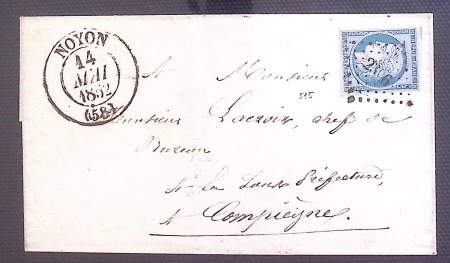 NOYON
14
MAI
1852
(58)
A Monsieur
515
Monsieur Lacroix, chef de
Bureau
A la Sous Préfecture,
A Compiègne.